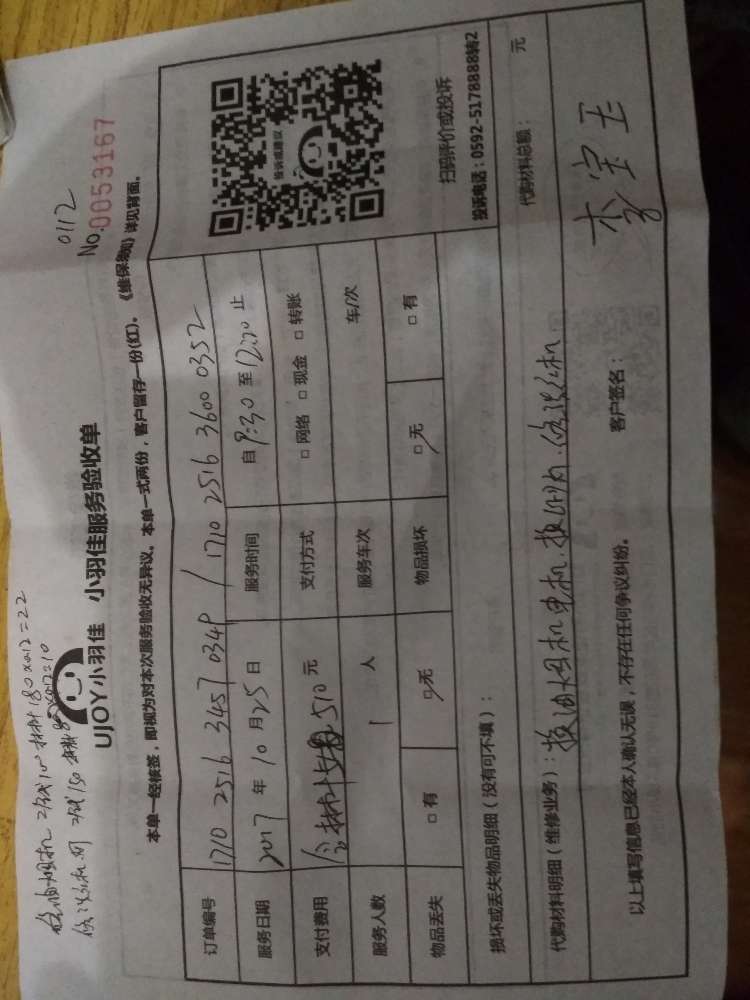 0112
No.0053167
UJOY小羽佳 小羽佳服务验收单
本单一经核签，即视为对本次服务验收无异议。本单一式两份，客户留存一份(红)。《维保须知》详见背面。
订单编号 1710 2516 3457 0349 / 1710 2516 3600 0352
服务日期 2017 年 10 月 25 日 服务时间 自 9:30 至 12:20 止
支付费用 510 元 支付方式 □ 网络 □ 现金 □ 转账
服务人数 1 人 服务车次 车/次
物品丢失 □ 有 □ 无 物品损坏 □ 无 □ 有
投诉或建议
扫码评价或投诉
投诉电话：0592-5178888转2
损坏或丢失物品明细（没有可不填）：
代购材料明细（维修业务）：换油烟机电机. 代购材料总额： 元
以上填写信息已经本人确认无误，不存在任何争议纠纷。 客户签名： 李宝玉